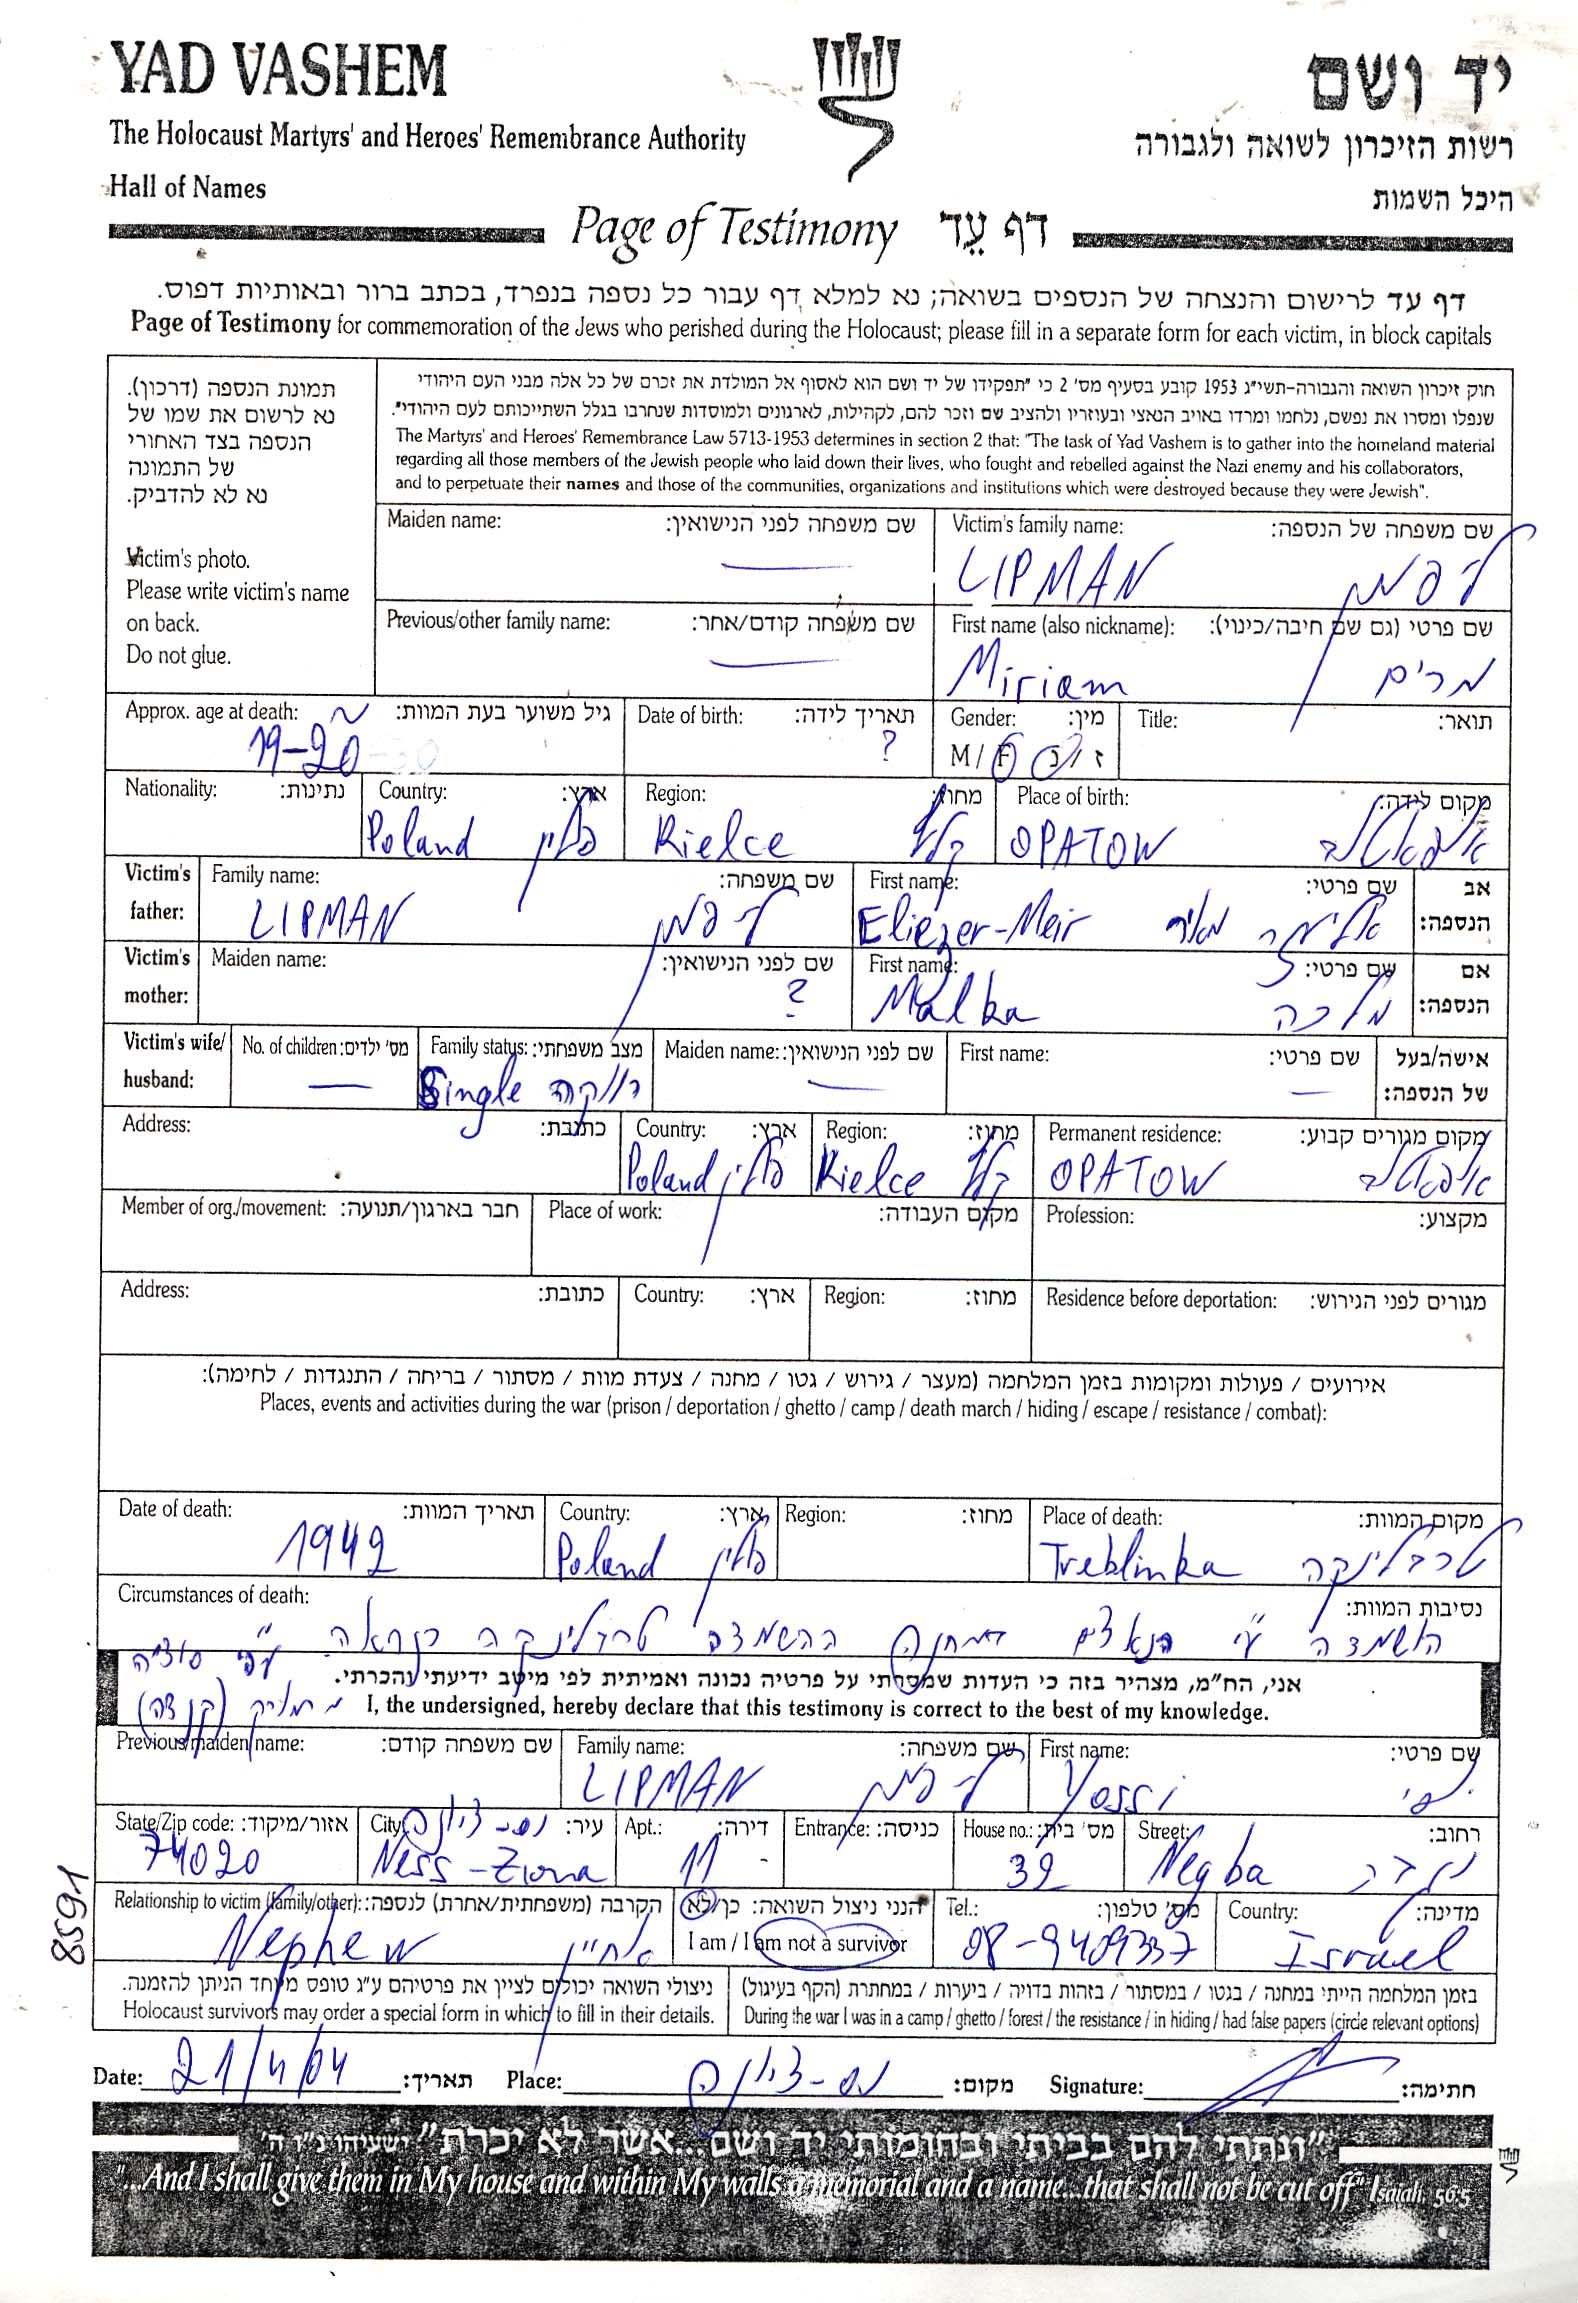 YAD VASHEM
יד ושם
The Holocaust Martyrs' and Heroes' Remembrance Authority
רשות הזיכרון לשואה ולגבורה
Hall of Names
היכל השמות
Page of Testimony דף עֵד
דף עד לרישום והנצחה של הנספים בשואה; נא למלא דף עבור כל נספה בנפרד, בכתב ברור ובאותיות דפוס.
Page of Testimony for commemoration of the Jews who perished during the Holocaust; please fill in a separate form for each victim, in block capitals
תמונת הנספה (דרכון).
נא לרשום את שמו של
הנספה בצד האחורי
של התמונה
נא לא להדביק.
Victim's photo.
Please write victim's name
on back.
Do not glue.
חוק זיכרון השואה והגבורה-תשי"ג 1953 קובע בסעיף מס' 2 כי "תפקידו של יד ושם הוא לאסוף אל המולדת את זכרם של כל אלה מבני העם היהודי
שנפלו ומסרו את נפשם, נלחמו ומרדו באויב הנאצי ובעוזריו ולהציב שם וזכר להם, לקהילות, לארגונים ולמוסדות שנחרבו בגלל השתייכותם לעם היהודי".
The Martyrs' and Heroes' Remembrance Law 5713-1953 determines in section 2 that: "The task of Yad Vashem is to gather into the homeland material
regarding all those members of the Jewish people who laid down their lives, who fought and rebelled against the Nazi enemy and his collaborators,
and to perpetuate their names and those of the communities, organizations and institutions which were destroyed because they were Jewish".
Maiden name: שם משפחה לפני הנישואין:
Victim's family name: שם משפחה של הנספה:
LIPMAN ליפמן
Previous/other family name: שם משפחה קודם/אחר:
First name (also nickname): שם פרטי (גם שם חיבה/כינוי):
Miriam מרים
Approx. age at death: גיל משוער בעת המוות:
~ 19-20
Date of birth: תאריך לידה:
?
Gender: מין:
M / F ז / נ
Title: תואר:
Nationality: נתינות:
Country: ארץ:
Poland פולין
Region: מחוז:
Kielce קלץ
Place of birth: מקום לידה:
OPATOW אופאטוב
Victim's father:
Family name: שם משפחה:
LIPMAN ליפמן
First name: שם פרטי:
Eliezer-Meir אליעזר מאיר
אב הנספה:
Victim's mother:
Maiden name: שם לפני הנישואין:
?
First name: שם פרטי:
Malka מלכה
אם הנספה:
Victim's wife/ husband:
No. of children: מס' ילדים:
Family status: מצב משפחתי:
Single רווקה
Maiden name: שם לפני הנישואין:
First name: שם פרטי:
אישה/בעל של הנספה:
Address: כתובת:
Country: ארץ:
Poland פולין
Region: מחוז:
Kielce קלץ
Permanent residence: מקום מגורים קבוע:
OPATOW אופאטוב
Member of org./movement: חבר בארגון/תנועה:
Place of work: מקום העבודה:
Profession: מקצוע:
Address: כתובת:
Country: ארץ:
Region: מחוז:
Residence before deportation: מגורים לפני הגירוש:
אירועים / פעולות ומקומות בזמן המלחמה (מעצר / גירוש / גטו / מחנה / צעדת מוות / מסתור / בריחה / התנגדות / לחימה):
Places, events and activities during the war (prison / deportation / ghetto / camp / death march / hiding / escape / resistance / combat):
Date of death: תאריך המוות:
1942
Country: ארץ:
Poland פולין
Region: מחוז:
Place of death: מקום המוות:
Treblinka טרבלינקה
Circumstances of death: נסיבות המוות:
הושמדה ע"י הנאצים במחנה ההשמדה טרבלינקה כנראה. עפ"י
אני, הח"מ, מצהיר בזה כי העדות שמסרתי על פרטיה נכונה ואמיתית לפי מיטב ידיעתי והכרתי.
(קנדה)
I, the undersigned, hereby declare that this testimony is correct to the best of my knowledge.
Previous/maiden name: שם משפחה קודם:
Family name: שם משפחה:
LIPMAN ליפמן
First name: שם פרטי:
Yossi יוסי
State/Zip code: אזור/מיקוד:
74020
City: עיר: נס-ציונה
Ness-Ziona
Apt.: דירה:
11
Entrance: כניסה:
-
House no.: מס' בית:
32
Street: רחוב:
Negba נגבה
Relationship to victim (family/other): הקרבה (משפחתית/אחרת) לנספה:
Nephew אחיין
הנני ניצול השואה: כן/לא
I am / I am not a survivor
Tel.: מס' טלפון:
08-9409337
Country: מדינה:
Israel
ניצולי השואה יכולים לציין את פרטיהם ע"ג טופס מיוחד הניתן להזמנה.
Holocaust survivors may order a special form in which to fill in their details.
בזמן המלחמה הייתי במחנה / בגטו / במסתור / בזהות בדויה / ביערות / במחתרת (הקף בעיגול)
During the war I was in a camp / ghetto / forest / the resistance / in hiding / had false papers (circle relevant options)
Date: 21/4/04 תאריך:
Place: נס-ציונה מקום:
Signature: חתימה:
"ונתתי להם בביתי ובחומותי יד ושם...אשר לא יכרת" ישעיהו נ"ו ה'
"...And I shall give them in My house and within My walls a memorial and a name...that shall not be cut off" Isaiah 56:5